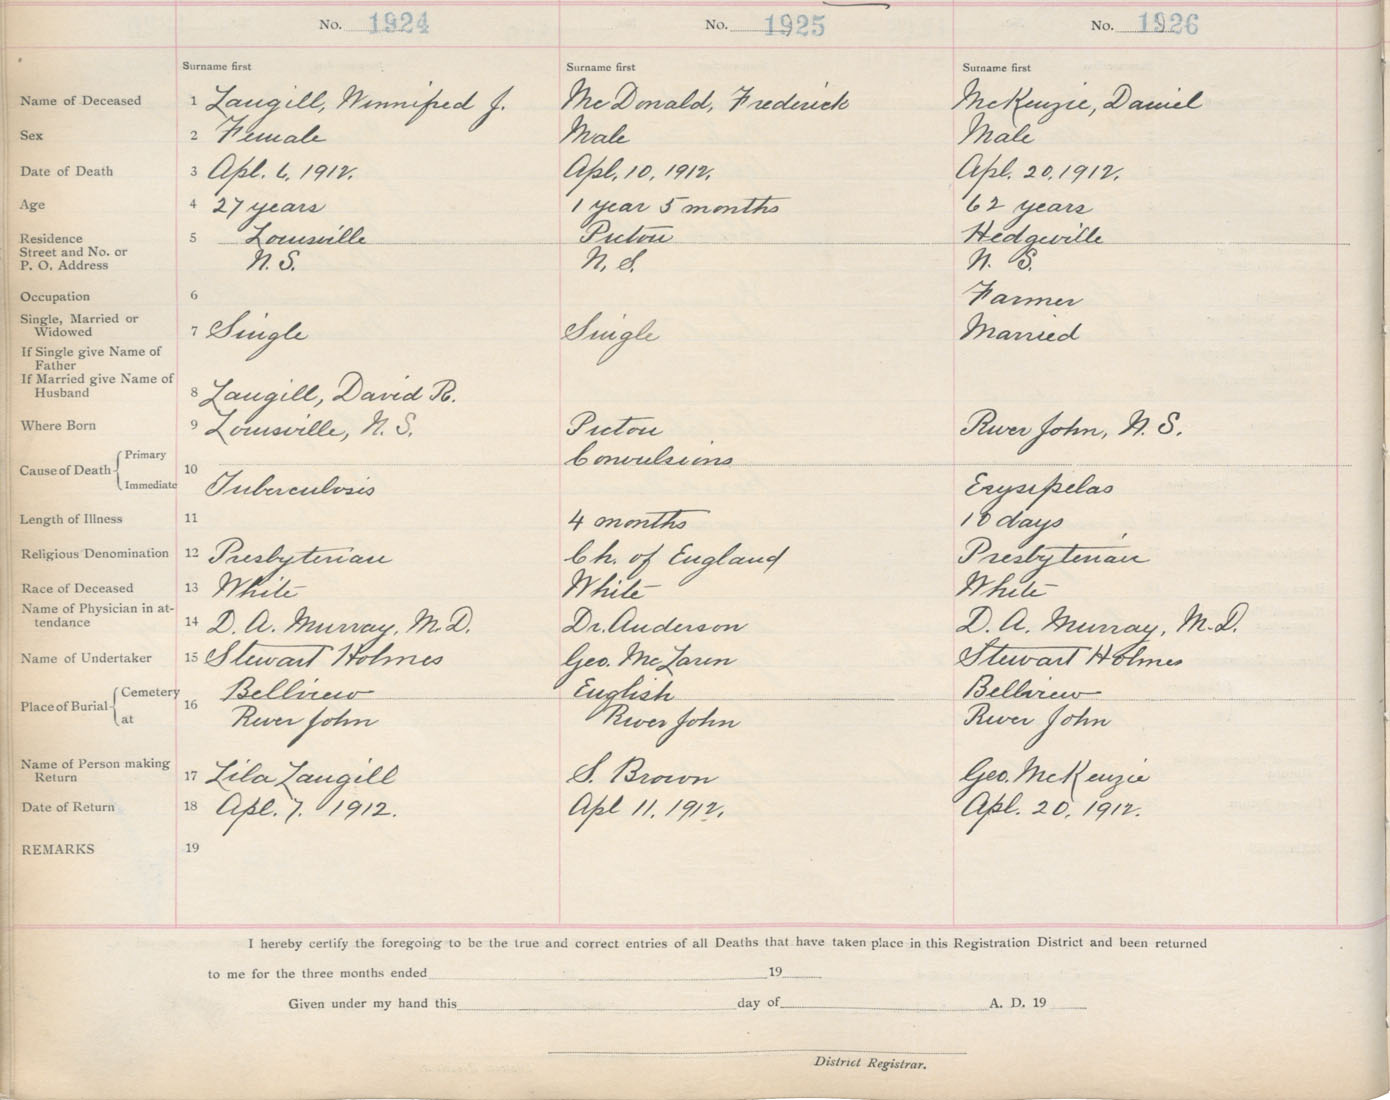 No. 1924 No. 1925 No. 1926
Surname first Surname first Surname first
Name of Deceased 1 Langill, Winnifred J. McDonald, Frederick McKenzie, Daniel
Sex 2 Female Male Male
Date of Death 3 Apl. 6, 1912. Apl. 10, 1912. Apl. 20, 1912.
Age 4 27 years 1 year 5 months 62 years
Residence 5 Louisville Pictou Hedgeville
Street and No. or
P. O. Address N.S. N.S. N. S.
Occupation 6 Farmer
Single, Married or
Widowed 7 Single Single Married
If Single give Name of
Father
If Married give Name of
Husband 8 Langill, David R.
Where Born 9 Louisville, N.S. Pictou River John, N.S.
Cause of Death Primary 10 Convulsions
Immediate Tuberculosis Erysipelas
Length of Illness 11 4 months 10 days
Religious Denomination 12 Presbyterian Ch. of England Presbyterian
Race of Deceased 13 White White White
Name of Physician in at-
tendance 14 D. A. Murray, M.D. Dr. Anderson D. A. Murray, M.D.
Name of Undertaker 15 Stewart Holmes Geo. McLaren Stewart Holmes
Place of Burial Cemetery 16 Bellview English Bellview
at River John River John River John
Name of Person making
Return 17 Lila Langill S. Brown Geo. McKenzie
Date of Return 18 Apl. 7. 1912. Apl 11. 1912. Apl. 20, 1912.
REMARKS 19
I hereby certify the foregoing to be the true and correct entries of all Deaths that have taken place in this Registration District and been returned
to me for the three months ended 19
Given under my hand this day of A. D. 19
District Registrar.